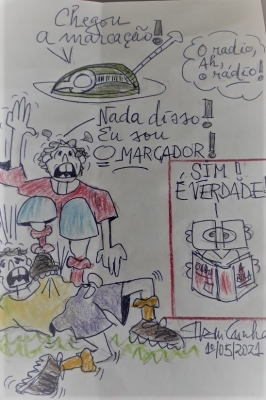 Chegou
a marcação!
O radio,
Ah,
o rádio!
Nada disso!
Eu sou
O MARCADOR!
SIM!
É VERDADE!
1º/05/2021